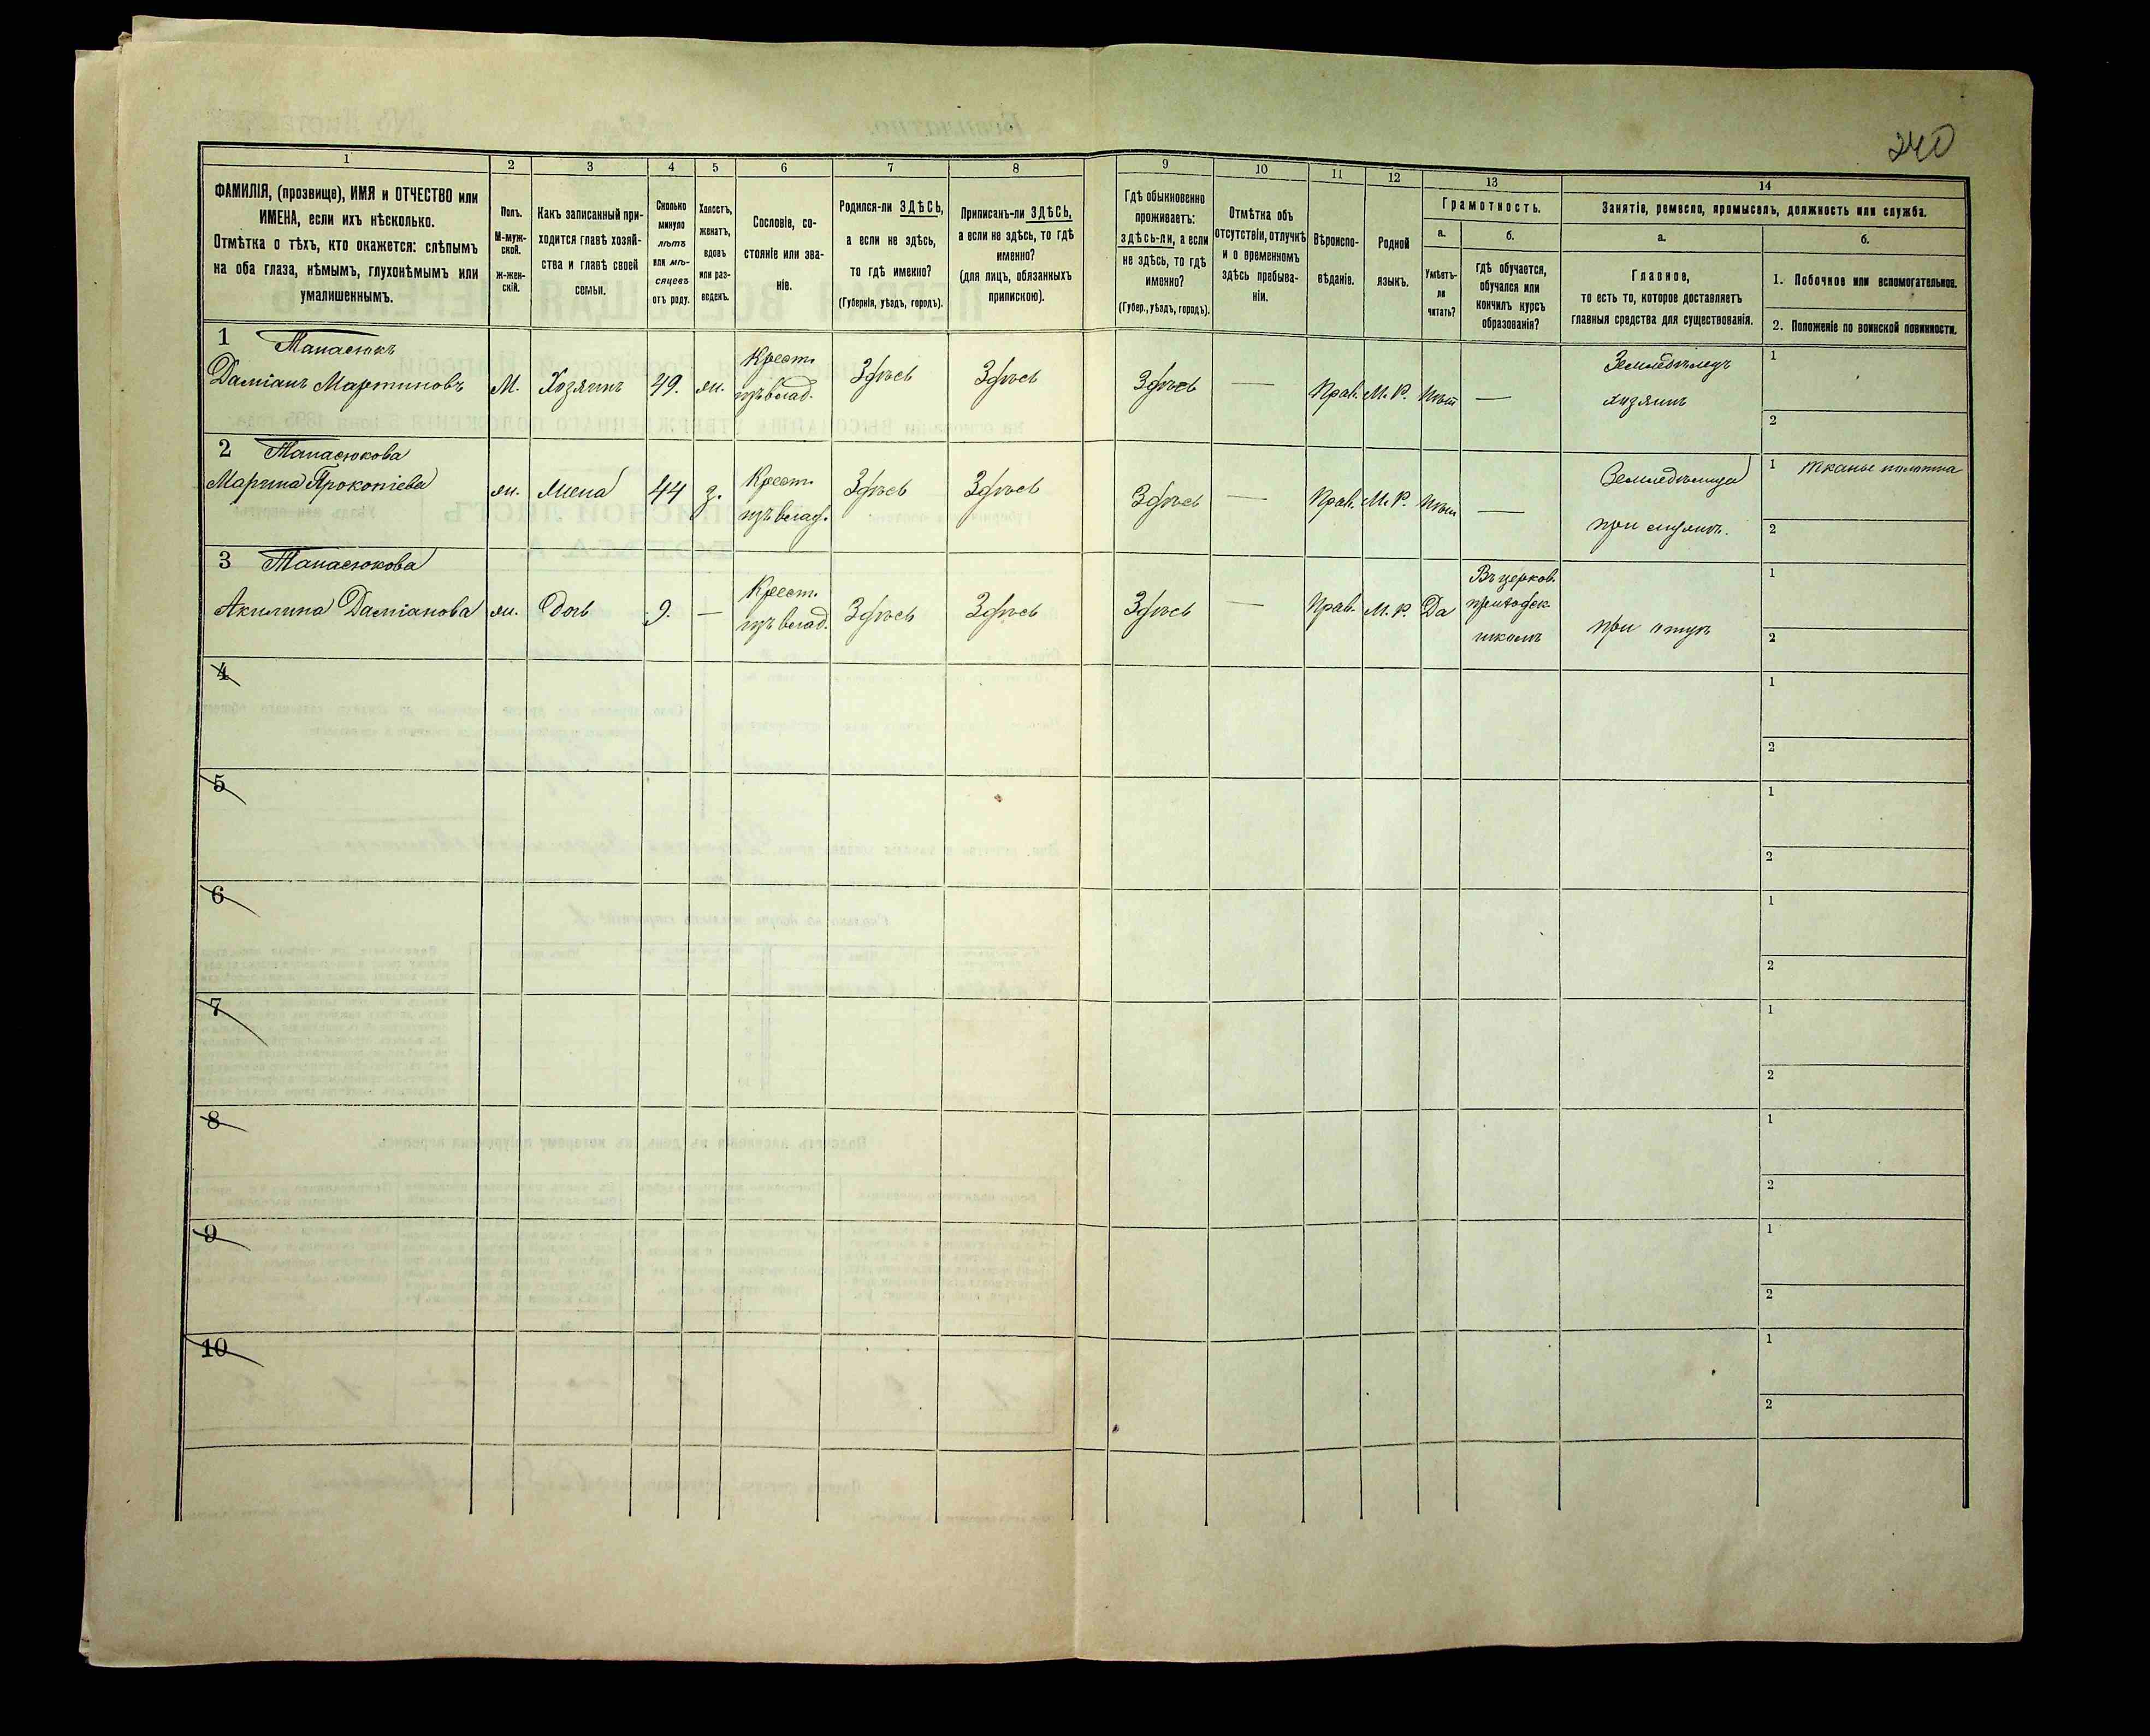 240
1
2
3
4
5
6
7
8
9
10
11
12
13
14
ФАМИЛІЯ, (прозвище), ИМЯ и ОТЧЕСТВО или
ИМЕНА, если ихъ нѣсколько.
Отмѣтка о тѣхъ, кто окажется: слѣпымъ
на оба глаза, нѣмымъ, глухонѣмымъ или
умалишеннымъ.
Полъ.
М-муж-
ской.
ж-жен-
скій.
Какъ записанный при-
ходится главѣ хозяй-
ства и главѣ своей
семьи.
Сколько
минуло
лѣтъ
или мѣ-
сяцевъ
отъ роду.
Холостъ,
женатъ,
вдовъ
или раз-
веденъ.
Сословіе, со-
стояніе или зва-
ніе.
Родился-ли ЗДѢСЬ,
а если не здѣсь,
то гдѣ именно?
(Губернія, уѣздъ, городъ).
Приписанъ-ли ЗДѢСЬ,
а если не здѣсь, то гдѣ
именно?
(для лицъ, обязанныхъ
припискою).
Гдѣ обыкновенно
проживаетъ:
здѣсь-ли, а если
не здѣсь, то гдѣ
именно?
(Губер., уѣздъ, городъ).
Отмѣтка объ
отсутствіи, отлучкѣ
и о временномъ
здѣсь пребыва-
ніи.
Вѣроиспо-
вѣданіе.
Родной
языкъ.
Грамотность.
а.
Умѣетъ-
ли
читать?
б.
гдѣ обучается,
обучался или
кончилъ курсъ
образованія?
Занятіе, ремесло, промыселъ, должность или служба.
а.
Главное,
то есть то, которое доставляетъ
главныя средства для существованія.
б.
1. Побочное или вспомогательное.
2. Положеніе по воинской повинности.
1 Танасюкъ
Даміанъ Мартиновъ М. Хозяинъ 49. ж.
Крест.
изъ влад.
Здѣсь Здѣсь Здѣсь — Прав. М. Р. Нѣт —
Земледѣлецъ
хозяинъ
1
2
2 Танасюкова
Марина Прокопіева ж. Жена 44 з.
Крест.
изъ влад.
Здѣсь Здѣсь Здѣсь — Прав. М. Р. Нѣт —
Земледѣлица
при мужѣ.
1 Тканье полотна
2
3 Танасюкова
Акилина Даміанова ж. Дочь 9. —
Крест.
изъ влад.
Здѣсь Здѣсь Здѣсь — Прав. М. Р. Да
Въ церков.
приходск.
школѣ
при отцѣ
1
2
4
1
2
5
1
2
6
1
2
7
1
2
8
1
2
9
1
2
10
1
2